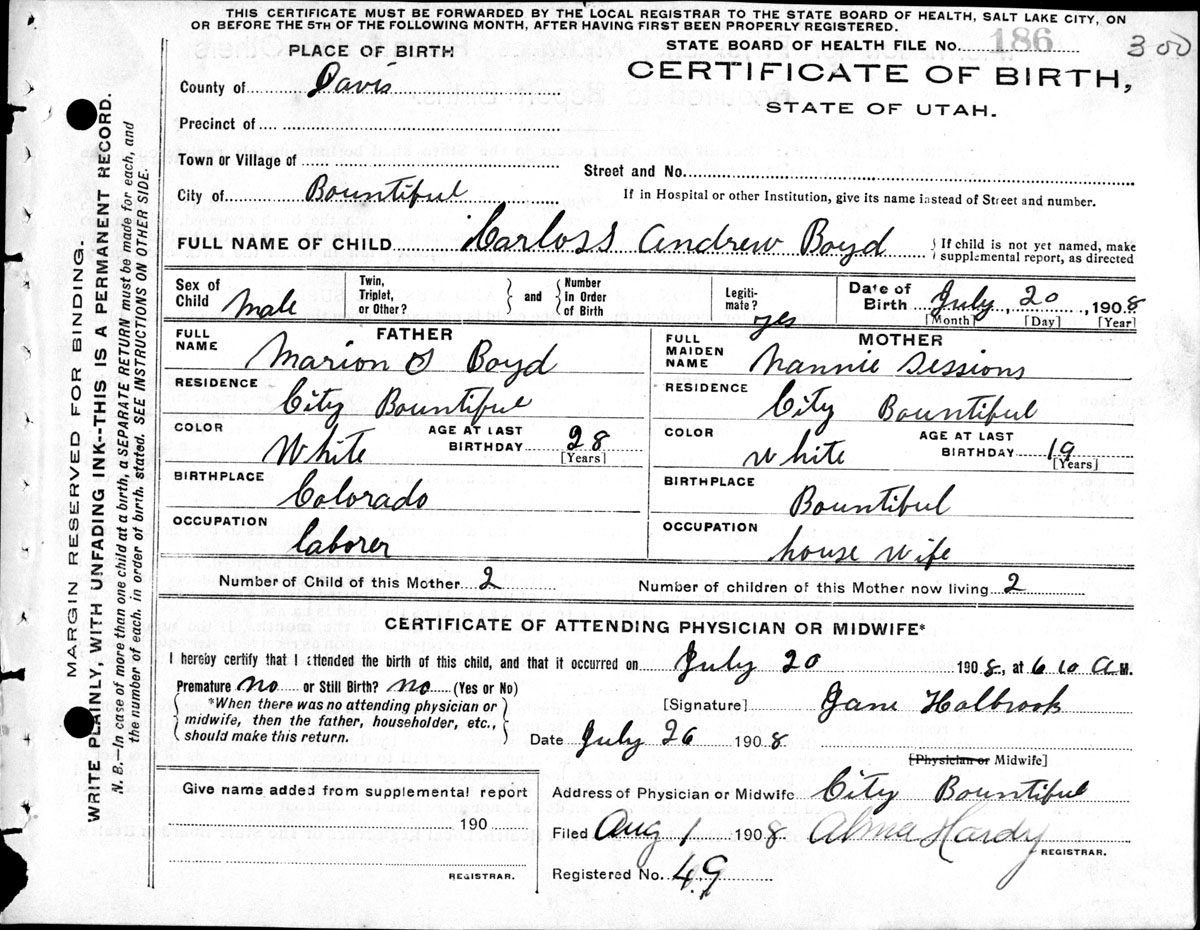 THIS CERTIFICATE MUST BE FORWARDED BY THE LOCAL REGISTRAR TO THE STATE BOARD OF HEALTH, SALT LAKE CITY, ON
OR BEFORE THE 5TH OF THE FOLLOWING MONTH, AFTER HAVING FIRST BEEN PROPERLY REGISTERED.
PLACE OF BIRTH
STATE BOARD OF HEALTH FILE No. 186
300
County of Davis
CERTIFICATE OF BIRTH,
STATE OF UTAH.
Precinct of
Town or Village of
Street and No.
City of Bountiful
If in Hospital or other Institution, give its name instead of Street and number.
FULL NAME OF CHILD Carloss Andrew Boyd
If child is not yet named, make
supplemental report, as directed
Sex of Child Male
Twin, Triplet, or Other?
and
Number In Order of Birth
Legiti-mate? yes
Date of Birth July, 20, 1908
[Month] [Day] [Year]
FATHER
FULL NAME Marion S Boyd
RESIDENCE City Bountiful
COLOR White
AGE AT LAST BIRTHDAY 28
[Years]
BIRTHPLACE Colorado
OCCUPATION Laborer
MOTHER
FULL MAIDEN NAME Nannie Sessions
RESIDENCE City Bountiful
COLOR White
AGE AT LAST BIRTHDAY 19
[Years]
BIRTHPLACE Bountiful
OCCUPATION house wife
Number of Child of this Mother 2
Number of children of this Mother now living 2
CERTIFICATE OF ATTENDING PHYSICIAN OR MIDWIFE*
I hereby certify that I attended the birth of this child, and that it occurred on July 20 1908, at 6 10 A M.
Premature No or Still Birth? No (Yes or No)
*When there was no attending physician or
midwife, then the father, householder, etc.,
should make this return.
[Signature] Jane Holbrook
Date July 26 1908
[Physician or Midwife]
Give name added from supplemental report
190
REGISTRAR.
Address of Physician or Midwife City Bountiful
Filed Aug 1 1908 Alma Hardy
REGISTRAR.
Registered No. 49
MARGIN RESERVED FOR BINDING.
WRITE PLAINLY, WITH UNFADING INK--THIS IS A PERMANENT RECORD.
N. B.—In case of more than one child at a birth, a SEPARATE RETURN must be made for each, and
the number of each, in order of birth, stated. SEE INSTRUCTIONS ON OTHER SIDE.